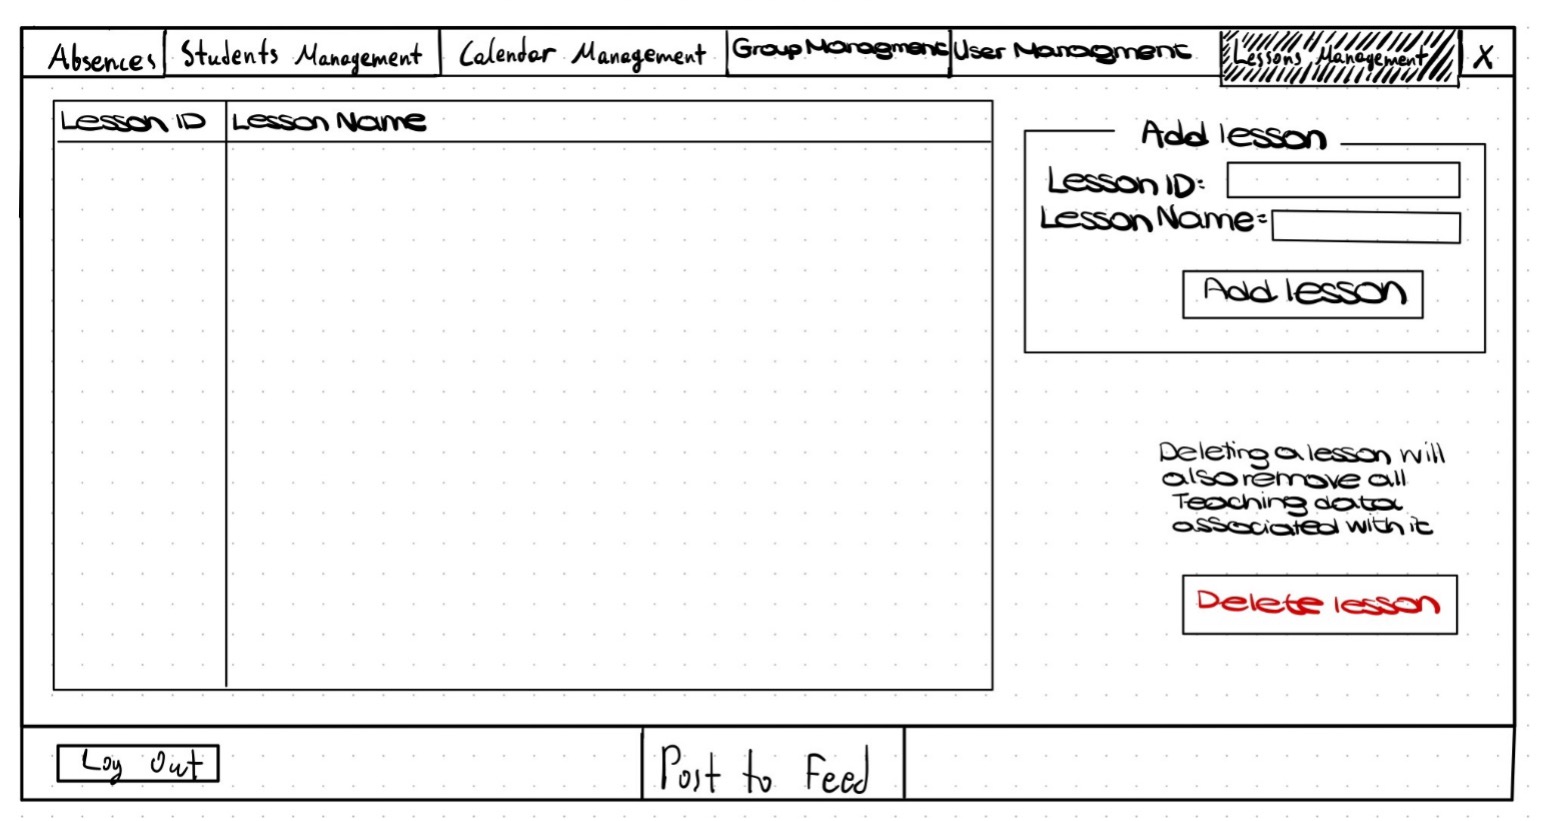 Absences Students Management Calendar Management Group Managment User Managment Lessons Management X
Lesson ID Lesson Name
Add lesson
Lesson ID:
Lesson Name:
Add lesson
Deleting a lesson will
also remove all
Teaching data
associated with it
Delete lesson
Log Out Post to Feed